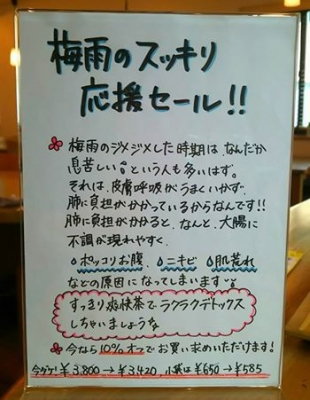 梅雨のスッキリ
応援セール!!
梅雨のジメジメした時期は、なんだか
息苦しい。という人も多いはず。
それは、皮膚呼吸がうまくいかず、
肺に負担がかかっているからなんです!!
肺に負担がかかると、なんと、大腸に
不調が現れやすく、
ポッコリお腹、ニキビ、肌荒れ
などの原因になってしまいます
すっきり爽快茶でラクラクデトックス
しちゃいましょう
今なら10%オフでお買い求めいただけます!
今ダケ!¥3,800→¥3,420、小袋は¥650→¥585